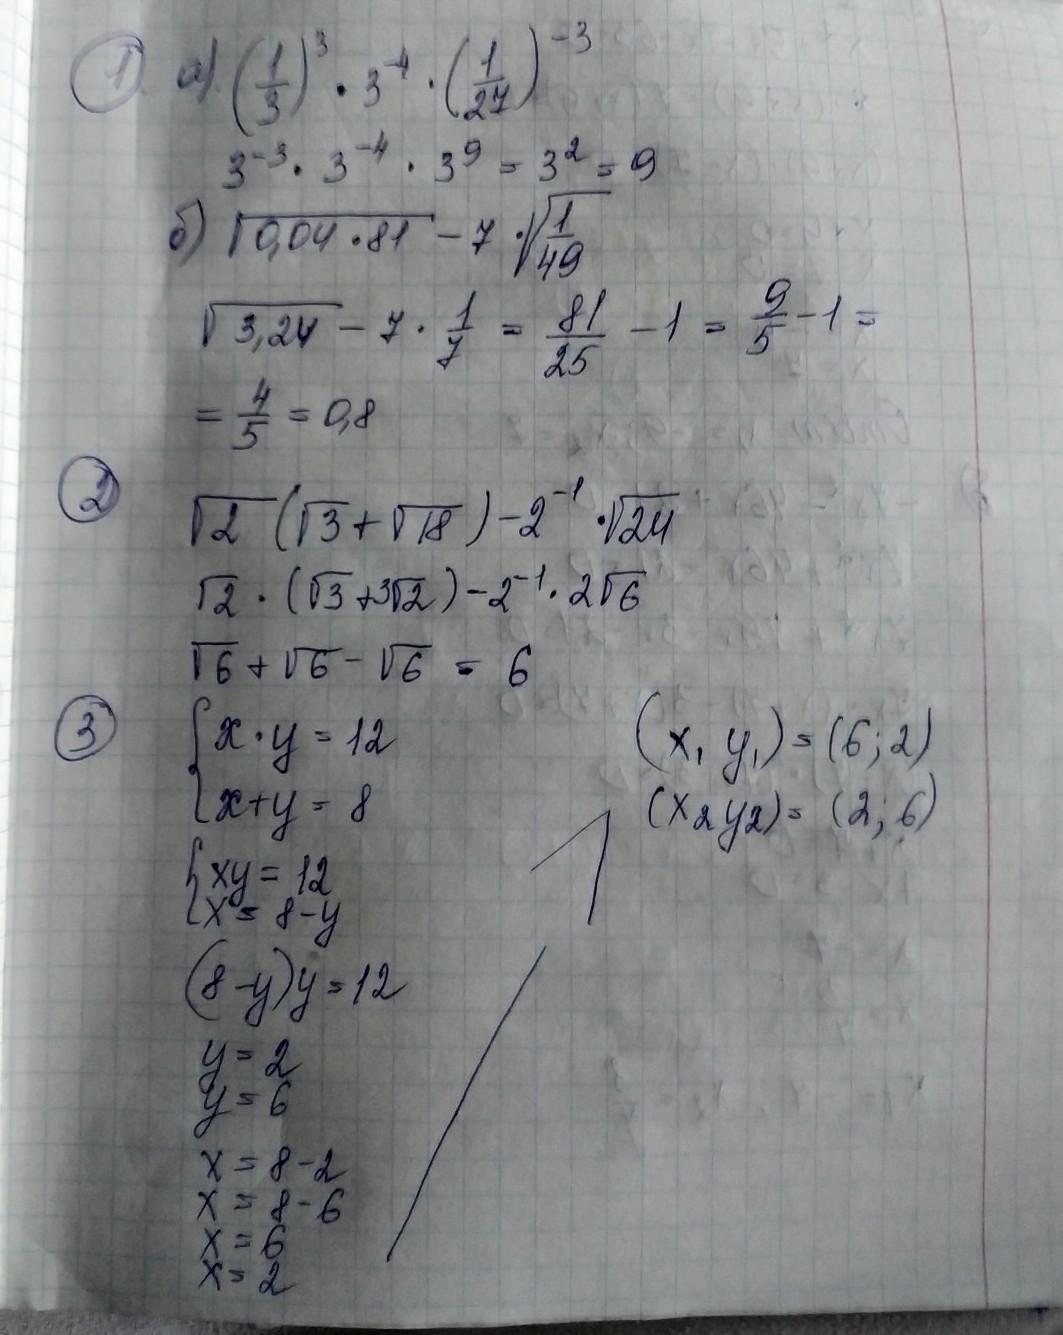 1. а) (1/3)³ · 3⁻⁴ · (1/27)⁻³
3⁻³ · 3⁻⁴ · 3⁹ = 3² = 9
б) √(0,04 · 81) − 7 · √(1/49)
√(3,24) − 7 · 1/7 = 81/25 − 1 = 9/5 − 1 =
= 4/5 = 0,8
2
√2 (√3 + √18) − 2⁻¹ · √24
√2 · (√3 + 3√2) − 2⁻¹ · 2√6
√6 + √6 − √6 = 6
3
{ x · y = 12
{ x + y = 8
{ xy = 12
{ x = 8 − y
(8 − y)y = 12
y = 2
y = 6
x = 8 − 2
x = 8 − 6
x = 6
x = 2
(x₁ y₁) = (6; 2)
(x₂ y₂) = (2; 6)